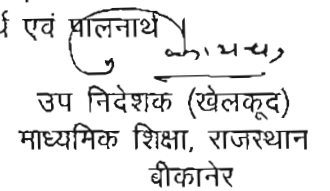 र्थ एवं पालनार्थ
उप निदेशक (खेलकूद)
माध्यमिक शिक्षा, राजस्थान
बीकानेर